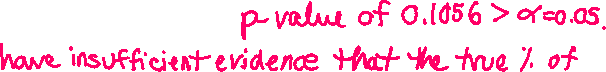 p-value of 0.1056 > α=0.05.
have insufficient evidence that the true % of